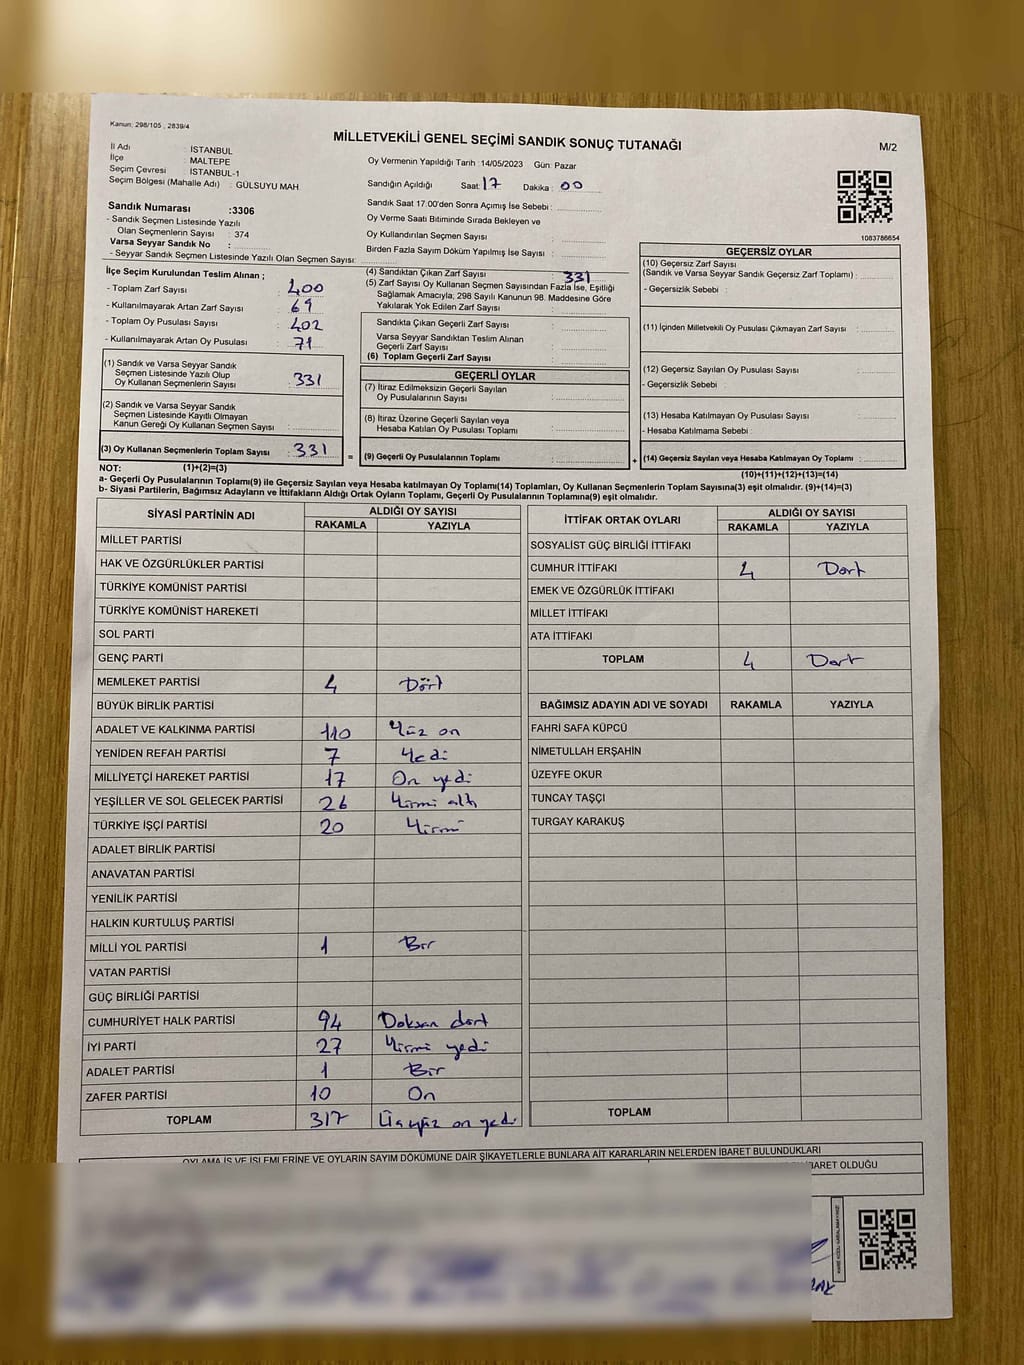 Kanun: 298/105 , 2839/4
MİLLETVEKİLİ GENEL SEÇİMİ SANDIK SONUÇ TUTANAĞI
M/2
İl Adı : İSTANBUL
İlçe : MALTEPE
Seçim Çevresi : İSTANBUL-1
Seçim Bölgesi (Mahalle Adı) : GÜLSUYU MAH
Oy Vermenin Yapıldığı Tarih :14/05/2023 Gün: Pazar
Sandığın Açıldığı Saat: 17 Dakika : 00
Sandık Saat 17.00'den Sonra Açımış İse Sebebi :
Oy Verme Saati Bitiminde Sırada Bekleyen ve
Oy Kullandırılan Seçmen Sayısı :
Birden Fazla Sayım Döküm Yapılmış İse Sayısı :
1083786654
Sandık Numarası :3306
- Sandık Seçmen Listesinde Yazılı
Olan Seçmenlerin Sayısı : 374
Varsa Seyyar Sandık No :
- Seyyar Sandık Seçmen Listesinde Yazılı Olan Seçmen Sayısı:
İlçe Seçim Kurulundan Teslim Alınan ;
- Toplam Zarf Sayısı : 400
- Kullanılmayarak Artan Zarf Sayısı : 69
- Toplam Oy Pusulası Sayısı : 402
- Kullanılmayarak Artan Oy Pusulası : 71
(1) Sandık ve Varsa Seyyar Sandık
Seçmen Listesinde Yazılı Olup
Oy Kullanan Seçmenlerin Sayısı : 331
(2) Sandık ve Varsa Seyyar Sandık
Seçmen Listesinde Kayıtlı Olmayan
Kanun Gereği Oy Kullanan Seçmen Sayısı :
(3) Oy Kullanan Seçmenlerin Toplam Sayısı : 331
(4) Sandıktan Çıkan Zarf Sayısı : 331
(5) Zarf Sayısı Oy Kullanan Seçmen Sayısından Fazla İse, Eşitliği
Sağlamak Amacıyla, 298 Sayılı Kanunun 98. Maddesine Göre
Yakılarak Yok Edilen Zarf Sayısı :
Sandıkta Çıkan Geçerli Zarf Sayısı :
Varsa Seyyar Sandıktan Teslim Alınan
Geçerli Zarf Sayısı :
(6) Toplam Geçerli Zarf Sayısı :
GEÇERLİ OYLAR
(7) İtiraz Edilmeksizin Geçerli Sayılan
Oy Pusulalarının Sayısı :
(8) İtiraz Üzerine Geçerli Sayılan veya
Hesaba Katılan Oy Pusulası Toplamı :
= (9) Geçerli Oy Pusulalarının Toplamı :
GEÇERSİZ OYLAR
(10) Geçersiz Zarf Sayısı
(Sandık ve Varsa Seyyar Sandık Geçersiz Zarf Toplamı) :
- Geçersizlik Sebebi :
(11) İçinden Milletvekili Oy Pusulası Çıkmayan Zarf Sayısı :
(12) Geçersiz Sayılan Oy Pusulası Sayısı :
- Geçersizlik Sebebi :
(13) Hesaba Katılmayan Oy Pusulası Sayısı :
- Hesaba Katılmama Sebebi :
+ (14) Geçersiz Sayılan veya Hesaba Katılmayan Oy Toplamı :
NOT: (1)+(2)=(3) (10)+(11)+(12)+(13)=(14)
a- Geçerli Oy Pusulalarının Toplamı(9) ile Geçersiz Sayılan veya Hesaba katılmayan Oy Toplamı(14) Toplamları, Oy Kullanan Seçmenlerin Toplam Sayısına(3) eşit olmalıdır. (9)+(14)=(3)
b- Siyasi Partilerin, Bağımsız Adayların ve İttifakların Aldığı Ortak Oyların Toplamı, Geçerli Oy Pusulalarının Toplamına(9) eşit olmalıdır.
SİYASİ PARTİNİN ADI ALDIĞI OY SAYISI
RAKAMLA YAZIYLA
MİLLET PARTİSİ
HAK VE ÖZGÜRLÜKLER PARTİSİ
TÜRKİYE KOMÜNİST PARTİSİ
TÜRKİYE KOMÜNİST HAREKETİ
SOL PARTİ
GENÇ PARTİ
MEMLEKET PARTİSİ 4 Dört
BÜYÜK BİRLİK PARTİSİ
ADALET VE KALKINMA PARTİSİ 110 Yüz on
YENİDEN REFAH PARTİSİ 7 Yedi
MİLLİYETÇİ HAREKET PARTİSİ 17 On yedi
YEŞİLLER VE SOL GELECEK PARTİSİ 26 Yirmi altı
TÜRKİYE İŞÇİ PARTİSİ 20 Yirmi
ADALET BİRLİK PARTİSİ
ANAVATAN PARTİSİ
YENİLİK PARTİSİ
HALKIN KURTULUŞ PARTİSİ
MİLLİ YOL PARTİSİ 1 Bir
VATAN PARTİSİ
GÜÇ BİRLİĞİ PARTİSİ
CUMHURİYET HALK PARTİSİ 94 Doksan dört
İYİ PARTİ 27 Yirmi yedi
ADALET PARTİSİ 1 Bir
ZAFER PARTİSİ 10 On
TOPLAM 317 Üçyüz on yedi
İTTİFAK ORTAK OYLARI ALDIĞI OY SAYISI
RAKAMLA YAZIYLA
SOSYALİST GÜÇ BİRLİĞİ İTTİFAKI
CUMHUR İTTİFAKI 4 Dort
EMEK VE ÖZGÜRLÜK İTTİFAKI
MİLLET İTTİFAKI
ATA İTTİFAKI
TOPLAM 4 Dort
BAĞIMSIZ ADAYIN ADI VE SOYADI RAKAMLA YAZIYLA
FAHRİ SAFA KÜPCÜ
NİMETULLAH ERŞAHİN
ÜZEYFE OKUR
TUNCAY TAŞÇI
TURGAY KARAKUŞ
TOPLAM
OYLAMA İŞ VE İŞLEMLERİNE VE OYLARIN SAYIM DÖKÜMÜNE DAİR ŞİKAYETLERLE BUNLARA AİT KARARLARIN NELERDEN İBARET BULUNDUKLARI
İBARET OLDUĞU